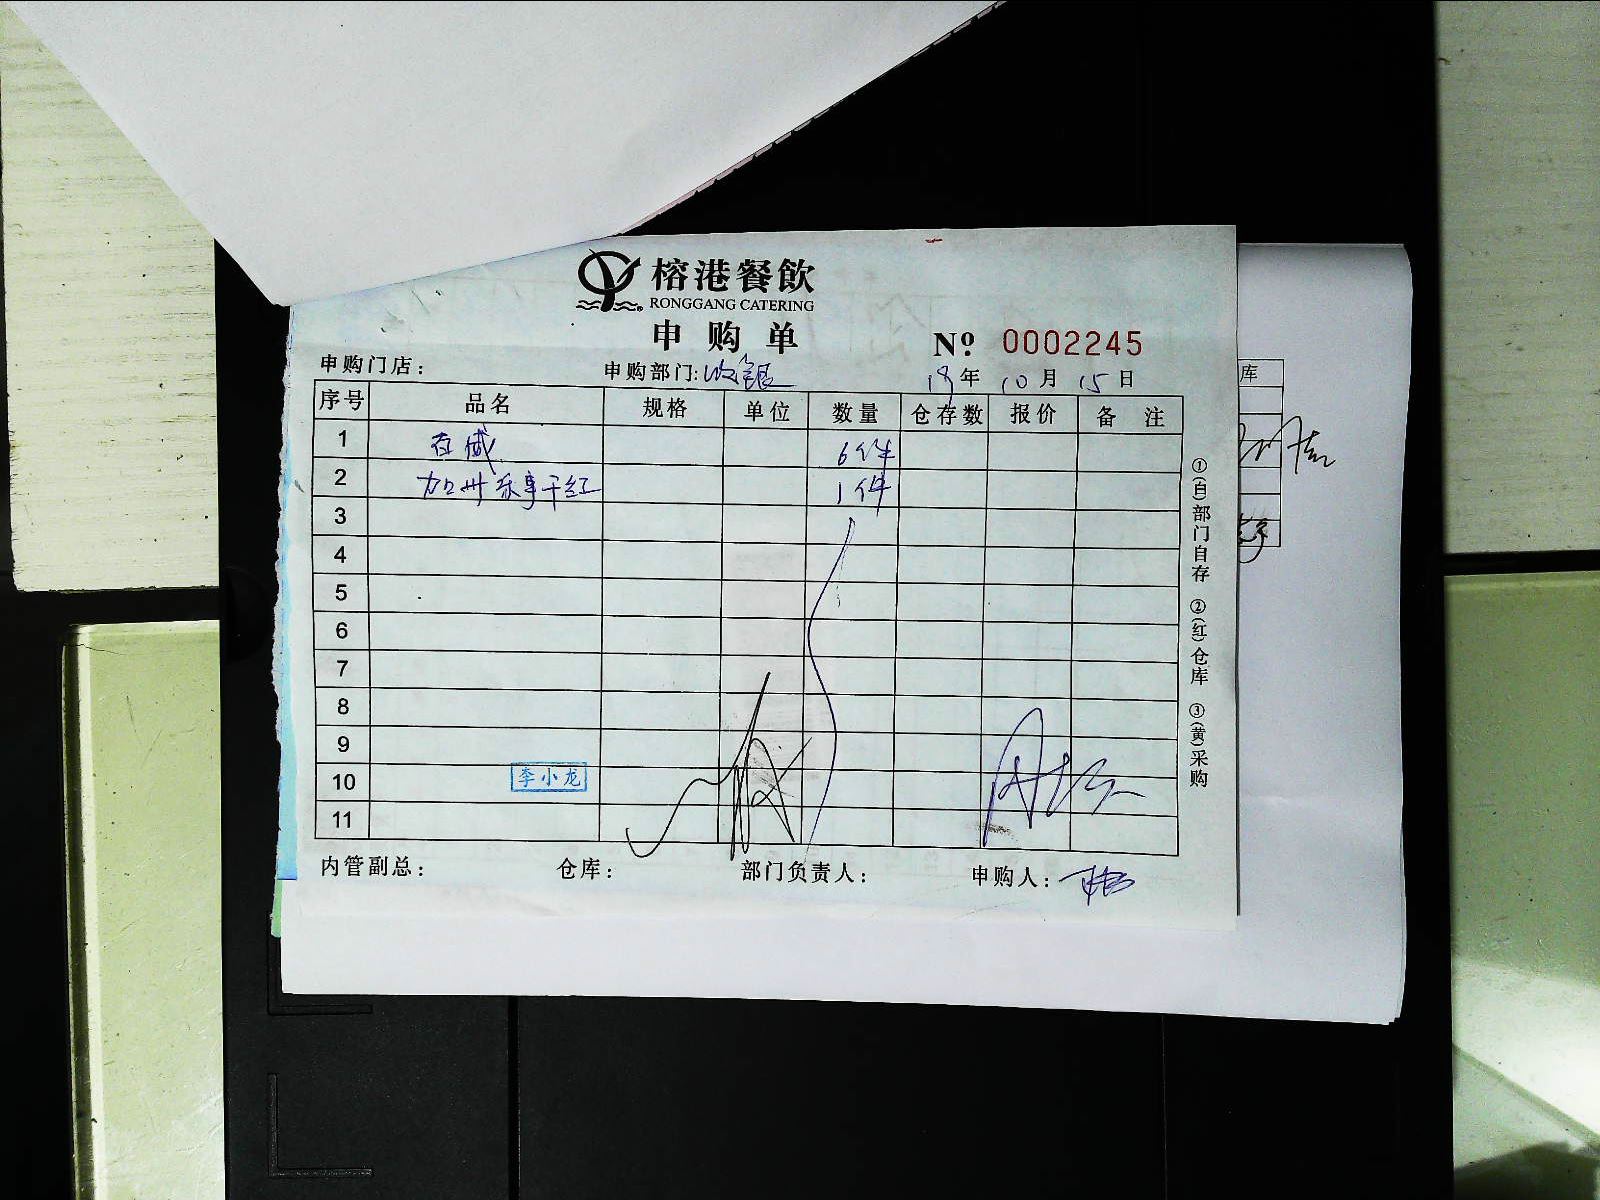 榕港餐飲
RONGGANG CATERING
申购单
Nº. 0002245
申购门店： 申购部门: 收银 19年 10月 15日
序号 品名 规格 单位 数量 仓存数 报价 备注
1 百威 6件
2 加州乐事干红 1件
3
4
5
6
7
8
9
10 李小龙
11
内管副总： 仓库： 部门负责人： 申购人：
①(白)部门自存 ②(红)仓库 ③(黄)采购
库